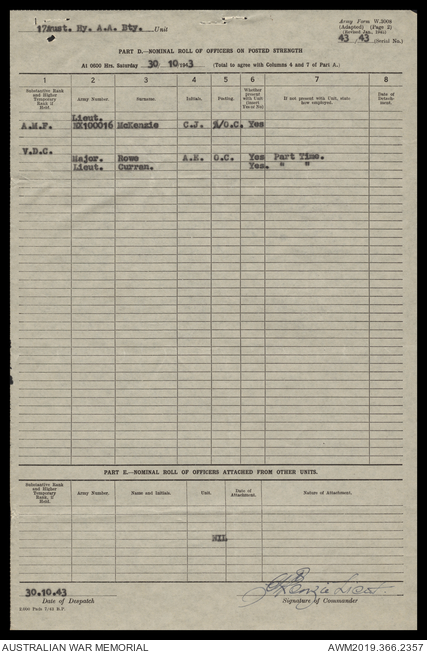 Army Form W.3008
17Aust. Hy. A.A. Bty. Unit
(Adapted) (Page 2)
(Revised Jan., 1943)
43 43 (Serial No.)
PART D.—NOMINAL ROLL OF OFFICERS ON POSTED STRENGTH
At 0600 Hrs, Saturday 30 10 1943 (Total to agree with Columns 4 and 7 of Part A.)
1 2 3 4 5 6 7 8
Substantive Rank and Higher Temporary Rank if Held. Army Number. Surname. Initials. Posting. Whether present with Unit (Insert Yes or No) If not present with Unit, state how employed. Date of Detach-ment.
Lieut.
A.M.F. NX100016 McKenzie C.J. A/O.C. Yes
V.D.C.
Major. Rowe A.E. O.C. Yes Part Time.
Lieut. Curran. Yes. " "
PART E.—NOMINAL ROLL OF OFFICERS ATTACHED FROM OTHER UNITS.
Substantive Rank and Higher Temporary Rank, if Held. Army Number. Name and Initials. Unit. Date of Attachment. Nature of Attachment.
NIL
30.10.43
Date of Despatch
Signature of Commander
AUSTRALIAN WAR MEMORIAL
AWM2019.366.2357